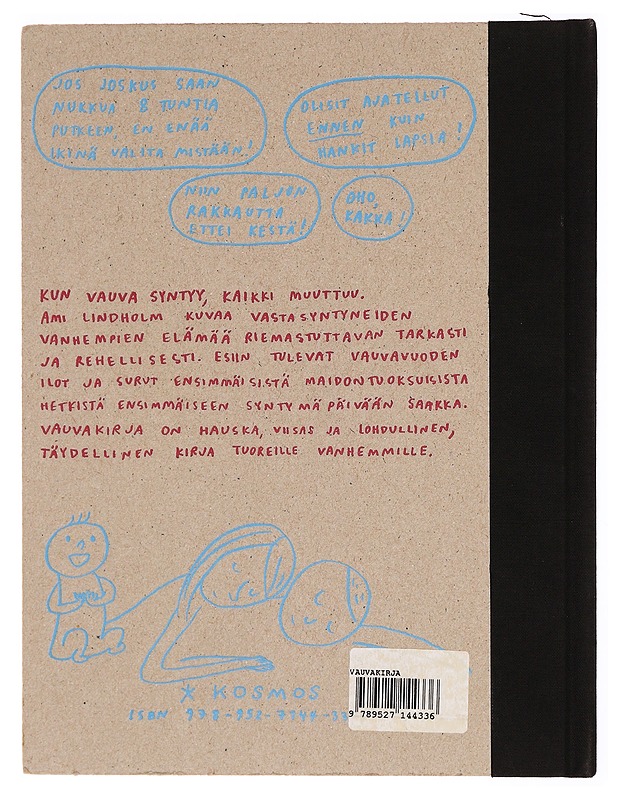 JOS JOSKUS SAAN
NUKKUA 8 TUNTIA
PUTKEEN, EN ENÄÄ
IKINÄ VALITA MISTÄÄN!
OLISIT AJATELLUT
ENNEN KUIN
HANKIT LAPSIA!
NIIN PALJON
RAKKAUTTA
ETTEI KESTÄ!
OHO,
KAKKA!
KUN VAUVA SYNTYY, KAIKKI MUUTTUU.
AMI LINDHOLM KUVAA VASTASYNTYNEIDEN
VANHEMPIEN ELÄMÄÄ RIEMASTUTTAVAN TARKASTI
JA REHELLISESTI. ESIIN TULEVAT VAUVAVUODEN
ILOT JA SURUT ENSIMMÄISISTÄ MAIDONTUOKSUISISTA
HETKISTÄ ENSIMMÄISEEN SYNTYMÄPÄIVÄÄN SAAKKA.
VAUVAKIRJA ON HAUSKA, VIISAS JA LOHDULLINEN,
TÄYDELLINEN KIRJA TUOREILLE VANHEMMILLE.
KOSMOS
ISBN 978-952-7144-33
VAUVAKIRJA
9 789527 144336